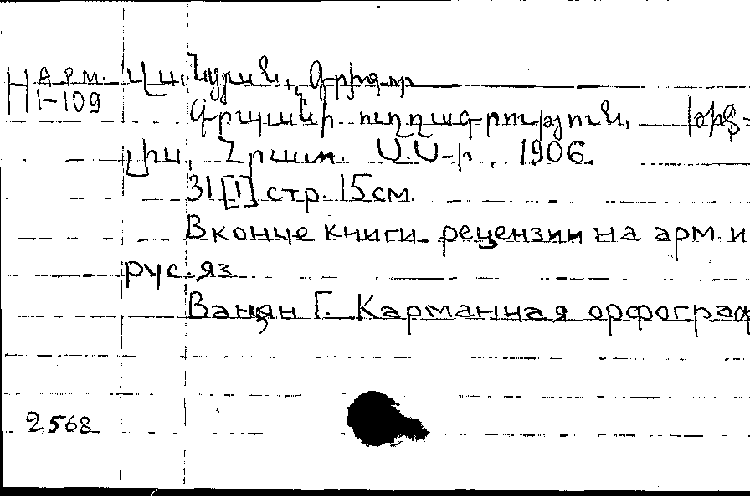 Н арм. Վանցյան, Գրիգոր
1-109
Գրպանի ուղղագրություն. Թիֆ-
լիս, Հրատ. Ս.Ս-ի, 1906.
31 [1] стр. 15см.
В конце книги рецензии на арм. и
рус. яз
Ванцян Г. Карманная орфограф
2568